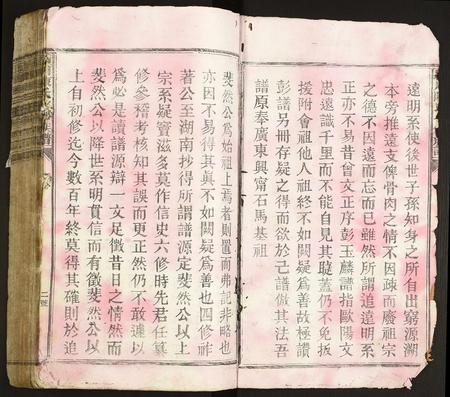 遠明系使後世子孫知身之所自出窮源溯
本旁推遠支俾骨肉之情不因疎而廢祖宗
之德不因遠而忘而已雖然所謂追遠明系
正亦不易昔曾文正序彭玉麟譜指歐陽文
忠遠識千里而不能自見其睫蓋仍不免扳
援附會祖他人祖終不如闕疑爲善故極讚
彭譜另冊存疑之得而欲於己譜倣其法吾
譜原奉廣東興甯石馬基祖
斐然公爲始祖上焉者則置而弗記非略也
亦因不易得其眞不如闕疑爲善也四修祚
著公至湖南抄得所謂譜源定斐然公以上
宗系疑竇滋多莫作信史六修時先君任纂
修參稽考核知其誤而更正然仍不敢遽以
爲必是讀譜源辯一文足徵昔日之情然而
斐然公以降世系明貫信而有徵斐然公以
上自初修迄今數百年終莫得其確則於追
二